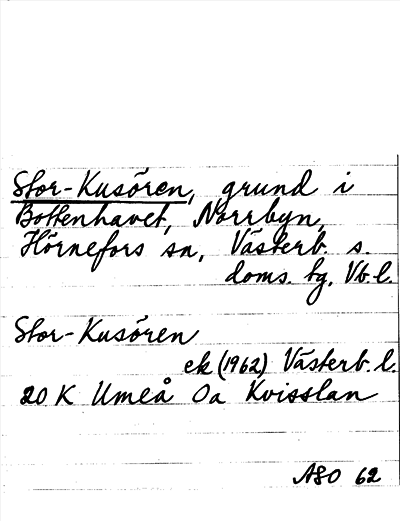 Stor-Kusören, grund i
Bottenhavet, Norrbyn,
Hörnefors sn, Västerb. s.
doms. tg, Vb.l.
Stor-Kusören
ek (1962) Västerb. l.
20 K Umeå Oa Kvisslan
ASO 62